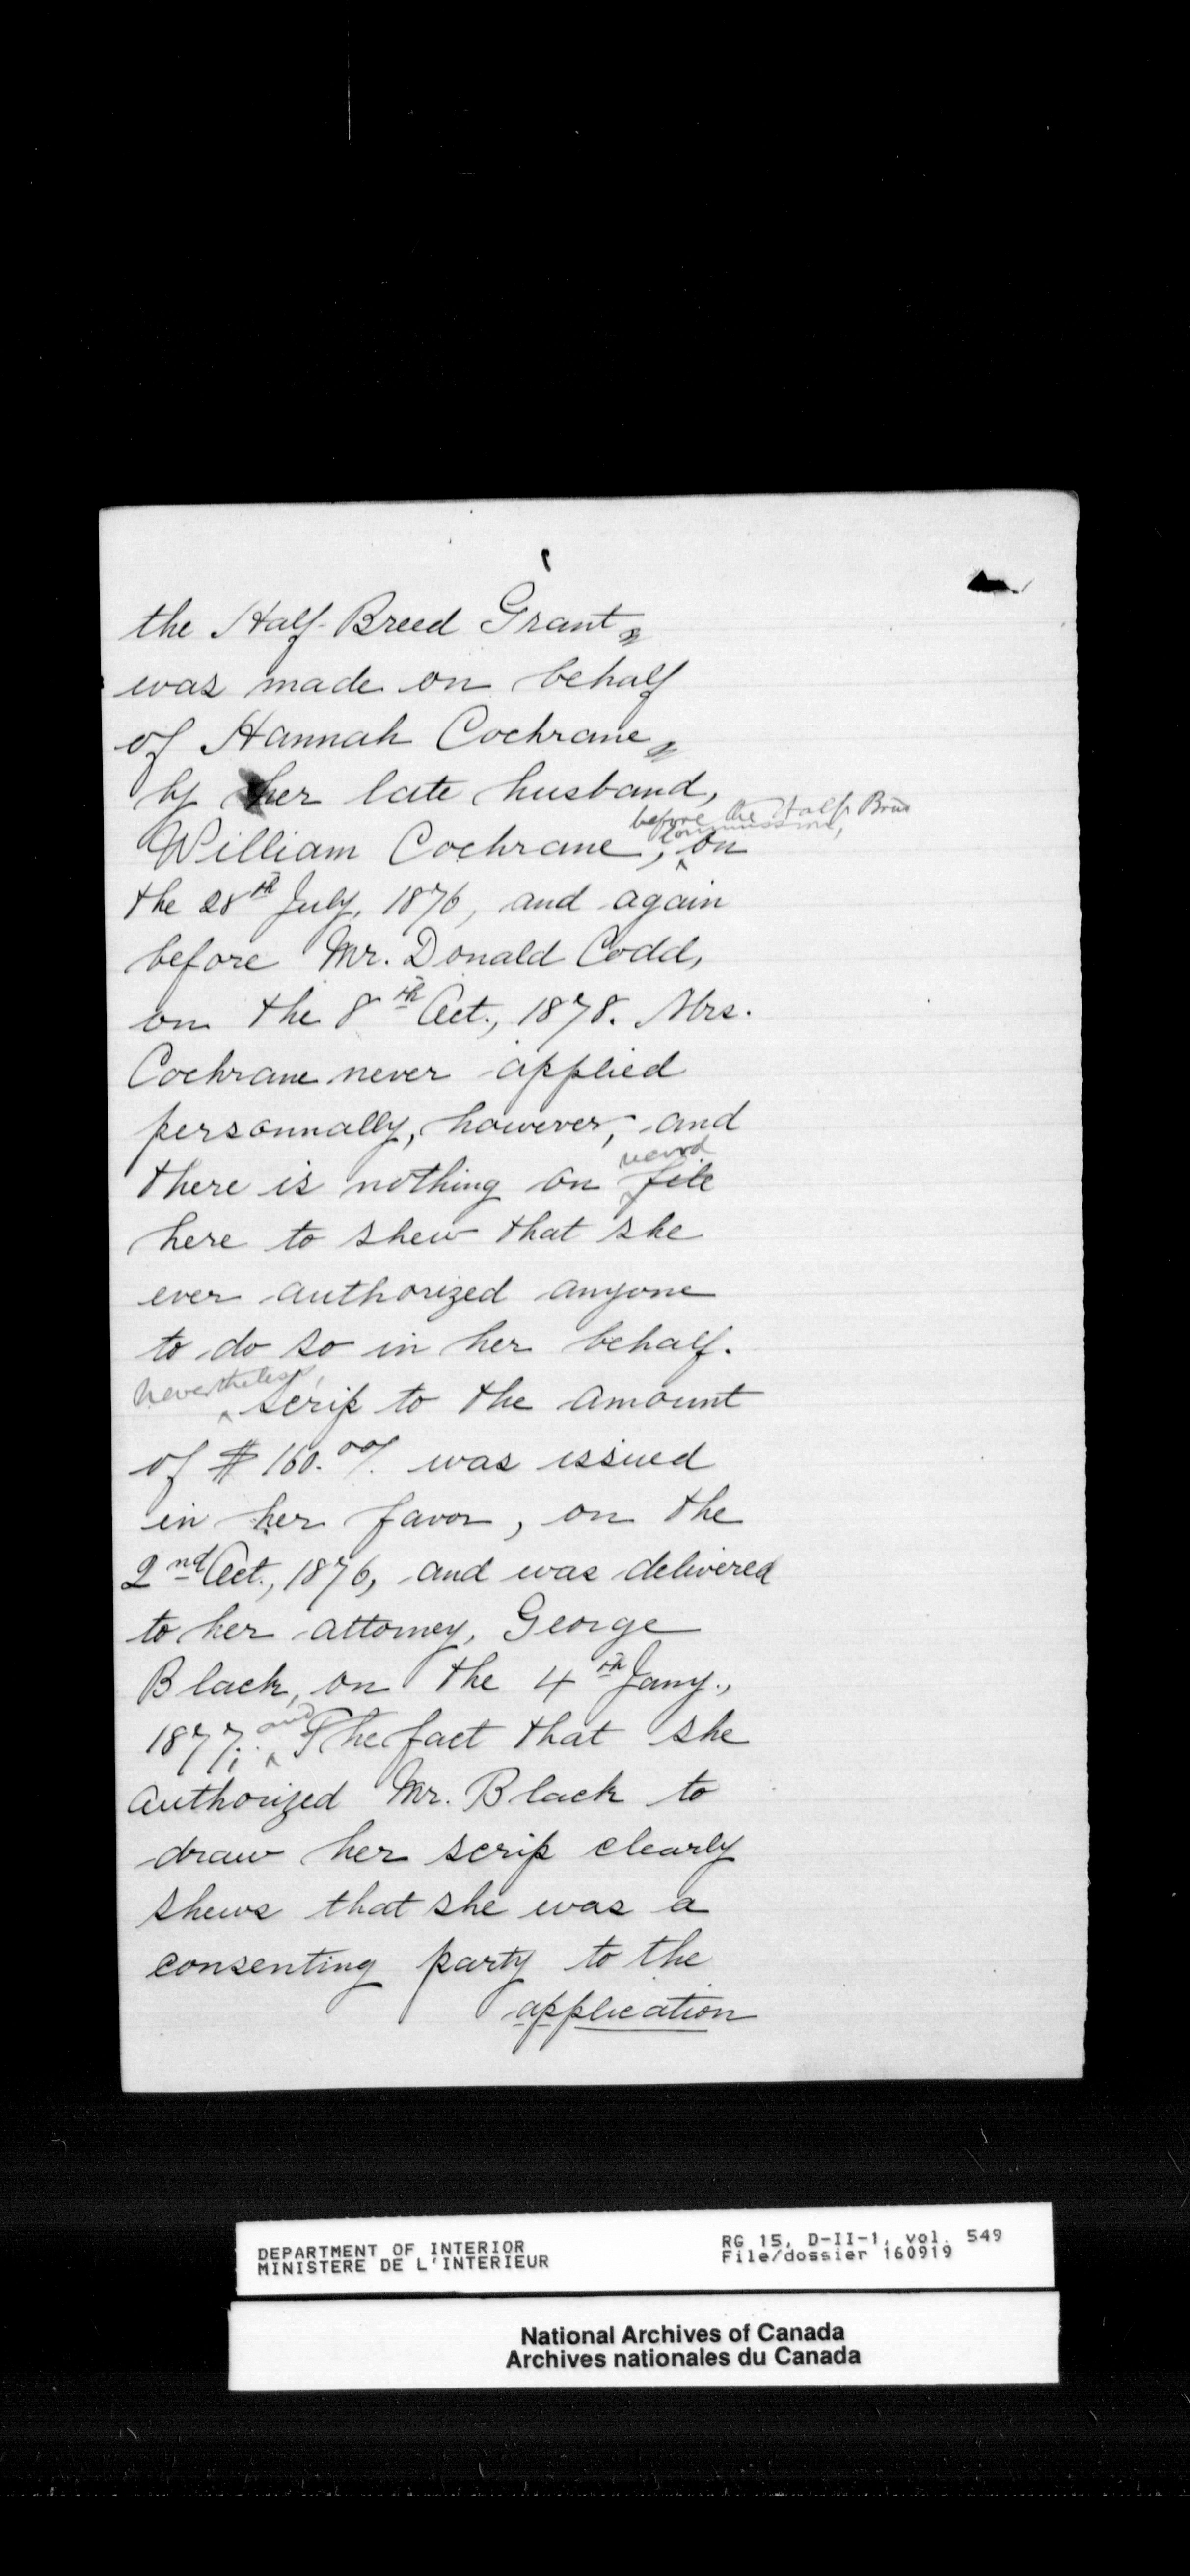 the Half-Breed Grant,
was made on behalf
of Hannah Cochrane,
by her late husband,
before the Half Breed
Commission,
William Cochrane, on
the 28th July, 1876, and again
before Mr. Donald Codd,
on the 8th Oct., 1878. Mrs.
Cochrane never applied
personnally, however, and
record
there is nothing on file
here to shew that she
ever authorized anyone
to do so in her behalf.
Nevertheless,
scrip to the amount
of $160.00/. was issued
in her favor, on the
2nd Oct., 1876, and was delivered
to her attorney, George
Black, on the 4th Jany.,
and
1877; The fact that she
authorized Mr. Black to
draw her scrip clearly
shews that she was a
consenting party to the
application
DEPARTMENT OF INTERIOR
MINISTERE DE L'INTERIEUR
RG 15, D-II-1, vol. 549
File/dossier 160919
National Archives of Canada
Archives nationales du Canada